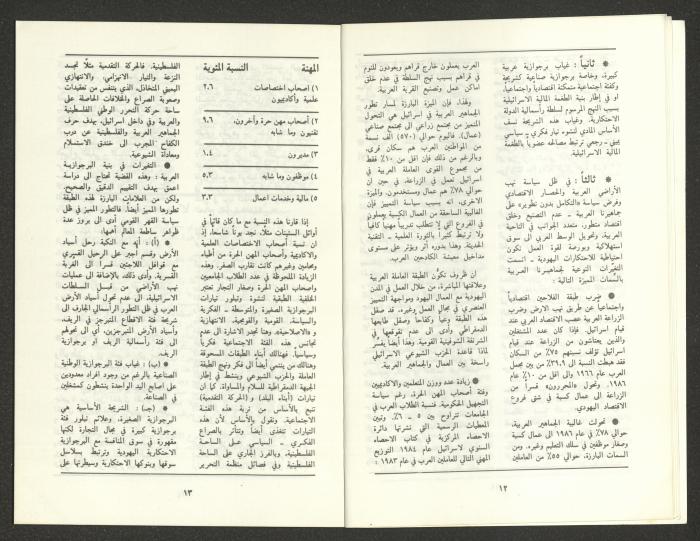 ● ثانياً : غياب برجوازية عربية
كبيرة، وخاصة برجوازية صناعية كشريحة
وكفئة اجتماعية متمكنة اقتصادياً واجتماعياً،
او في إطار بنية الطغمة المالية الاسرائيلية
بسبب النهج المرسوم لسلطة رأسمالية الدولة
الاحتكارية. وغياب هذه الشريحة نسف
الأساس المادي لنشوء تيار فكري - سياسي
يميني - رجعي ترتبط مصالحه عضوياً بالطغمة
المالية الاسرائيلية.
● ثالثاً : في ظل سياسة نهب
الأراضي العربية والحصار الاقتصادي
وفرض سياسة «التكامل بدون تطوير» على
جماهيرنا العربية - عدم التصنيع وخلق
اقتصاد متطور، متعدد الجوانب في الناحية
العربية، وتحويل الوسط العربي الى سوق
استهلاكية وبورصة لقوة العمل تكون
احتياطية للاحتكارات اليهودية - اتسمت
التغيّرات النوعية لجماهيرنا العربية
بالسمات المميزة التالية :
● ضرب طبقة الفلاحين اقتصادياً
واجتماعياً عن طريق نهب الارض وضرب
الزراعة العربية عصب الاقتصاد العربي عند
قيام اسرائيل. فإذا كان عدد المشتغلين
والذين يعتاشون من الزراعة عند قيام
اسرائيل تؤلف نسبتهم ٧٥٪ من السكان
فقد هبطت النسبة الى ٣٩،١٪ من مجمل
العرب عام ١٩٦٦ والى اقل من ١٠٪ عام
١٩٨٦. وتحول «المحررون» قسراً من
الزراعة الى عمال كسبة في شتى فروع
الاقتصاد اليهودي.
● تحولت غالبية الجماهير العربية،
حوالي ٧٨٪ في عام ١٩٨٦ الى عمال كسبة
وصغار موظفين في سلك التعليم وغيره. ومن
السمات البارزة، حوالي ٥٥٪ من العاملين
العرب يعملون خارج قراهم ويعودون للنوم
في قراهم بسبب نهج السلطة في عدم خلق
اماكن عمل وتصنيع القرية العربية.
ولهذا، فإن الميزة البارزة لمسار تطور
الجماهير العربية في اسرائيل هي التحول
المتميز من مجتمع زراعي الى مجتمع صناعي
(عمال). فاليوم حوالي (٥٧٠) الف نسمة
من المواطنين العرب هم سكان قرى،
وبالرغم من ذلك فإن اقل من ١٠٪ فقط
من مجموع القوى العاملة العربية في
اسرائيل تعمل في الزراعة، في حين ان
حوالي ٧٨٪ هم عمال ومستخدمون. والميزة
الاخرى، انه بسبب سياسة التمييز فإن
الغالبية الساحقة من العمال الكسبة يعملون
في الفروع التي لا تتطلب تدريباً مهنياً كافياً
ولا ترتبط كثيراً بالثورة العلمية - التقنية
الحديثة. وهذا بدوره أثر ويؤثر على مستوى
مداخيل معيشة الكادحين العرب.
ان ظروف تكوُّن الطبقة العاملة العربية
وعلاقتها المباشرة، من خلال العمل في المدن
اليهودية مع العمال اليهود ومواجهة التمييز
العنصري في مجالي العمل وغيره، قد صقل
هذه الطبقة وعياً وكفاحاً وصقل طابعها
الديمقراطي وأدى الى عدم تقوقعها في
الشرنقة الشوفينية القومية. وهذا أيضاً يفسر
لماذا قاعدة الحزب الشيوعي الاسرائيلي
راسخة بين العمال والجماهير العربية.
● زيادة عدد ووزن المتعلمين والاكاديميين
وفئة أصحاب المهن الحرة، رغم سياسة
التجهيل الحكومية. فنسبة الطلاب العرب في
الجامعات تتراوح بين ٥ - ٦٪. وتبين
المعطيات الرسمية التي نشرتها دائرة
الاحصاء المركزية في كتاب الاحصاء
السنوي لاسرائيل عام ١٩٨٤ التوزيع
المهني التالي للعاملين العرب في عام ١٩٨٣ :
١٢
المهنة النسبة المئوية
١) اصحاب اختصاصات ٢،٦
علمية وأكاديميون
٢) أصحاب مهن حرة وآخرون، ٩،٦
تقنيون وما شابه
٣) مديرون ١،٤
٤) موظفون وما شابه ٥،٣
٥) مالية وخدمات اعمال ٣،٣
إذا قارنا هذه النسبة مع ما كان قائماً في
أوائل الستينات مثلاً، نجد بوناً شاسعاً، إذ
ان نسبة أصحاب الاختصاصات العلمية
والاكاديمية وأصحاب المهن الحرة من أطباء
ومحامين وغيرهم كانت تقارب الصفر. وهذه
الزيادة الملحوظة في عدد الطلاب الجامعيين
واصحاب المهن الحرة وصغار التجار تعتبر
الخلفية الطبقية لنشوء وتبلور تيارات
البرجوازية الصغيرة والمتوسطة - الفكرية
والسياسة، القومية والقومجية، الانتهازية
و «الاصلاحية». وهنا تجدر الاشارة الى عدم
تجانس هذه الفئة الاجتماعية فكرياً
وسياسياً. فهنالك أبناء الطبقات المسحوقة
وهنالك من ينتمي أيضاً الى فكر ونهج الطبقة
العاملة والحزب الشيوعي وينشط في إطار
الجبهة الديمقراطية للسلام والمساواة، كما ان
تيارات (أبناء البلد) و (الحركة التقدمية)
تنبع بالأساس من تربة هذه الفئة
الاجتماعية. ونقول بالأساس لأن هذه
التيارات تتغذى أيضاً وتتأثر بالصراع
الفكري - السياسي على الساحة
الفلسطينية، وبالفرز الجاري على الساحة
الفلسطينية وفي فصائل منظمة التحرير
الفلسطينية. فالحركة التقدمية مثلاً تجسد
النزعة والتيار الانهزامي، والانتهازي
اليميني المتخاذل، الذي يتنفس من تعقيدات
وصعوبة الصراع والخلافات الحاصلة على
ساحة حركة التحرر الوطني الفلسطينية
والعربية وفي داخل اسرائيل، بهدف حرف
الجماهير العربية والفلسطينية عن درب
الكفاح المجرب الى خندق الاستسلام
ومعاداة الشيوعية.
● التغيرات في بنية البرجوازية
العربية : وهذه القضية تحتاج الى دراسة
أعمق بهدف التقييم الدقيق والصحيح.
ولكن من العلامات البارزة لهذه الطبقة
تطورها المميز أيضاً. فالتطور المميز في ظل
سياسة القهر القومي أدى الى بروز عدة
ظواهر ساطعة المعالم أهمها :
● (أ) : أنه مع النكبة رحل أسياد
الأرض وقسم أجبر على الرحيل القسري
مع قوافل اللاجئين قسراً الى الغربة
القسرية. وأدى ذلك، بالاضافة الى عمليات
نهب الأراضي من قبل السلطات
الاسرائيلية، الى عدم تحول أسياد الأرض
العرب في ظل التطور الرأسمالي الجارف الى
شريحة فئة الاقطاع المتبرجز في الريف،
وأسياد الأرض المتبرجزين، أي الى تحولهم
الى فئة رأسمالية الريف او برجوازية
الريف.
● (ب) : غياب فئة البرجوازية الوطنية
الصناعية بالرغم من وجود أفراد معدودين
على أصابع اليد الواحدة ينشطون كمشغلين
في الصناعة.
● (جـ) : الشريحة الأساسية هي
البرجوازية الصغيرة، وعلائم تبلور فئة
برجوازية كبيرة في مجال التجارة لكنها
مقهورة في سوق المنافسة مع البرجوازية
الاحتكارية اليهودية وترتبط بسلاسل
سوقها وبنوكها الاحتكارية وسيطرتها على
١٣